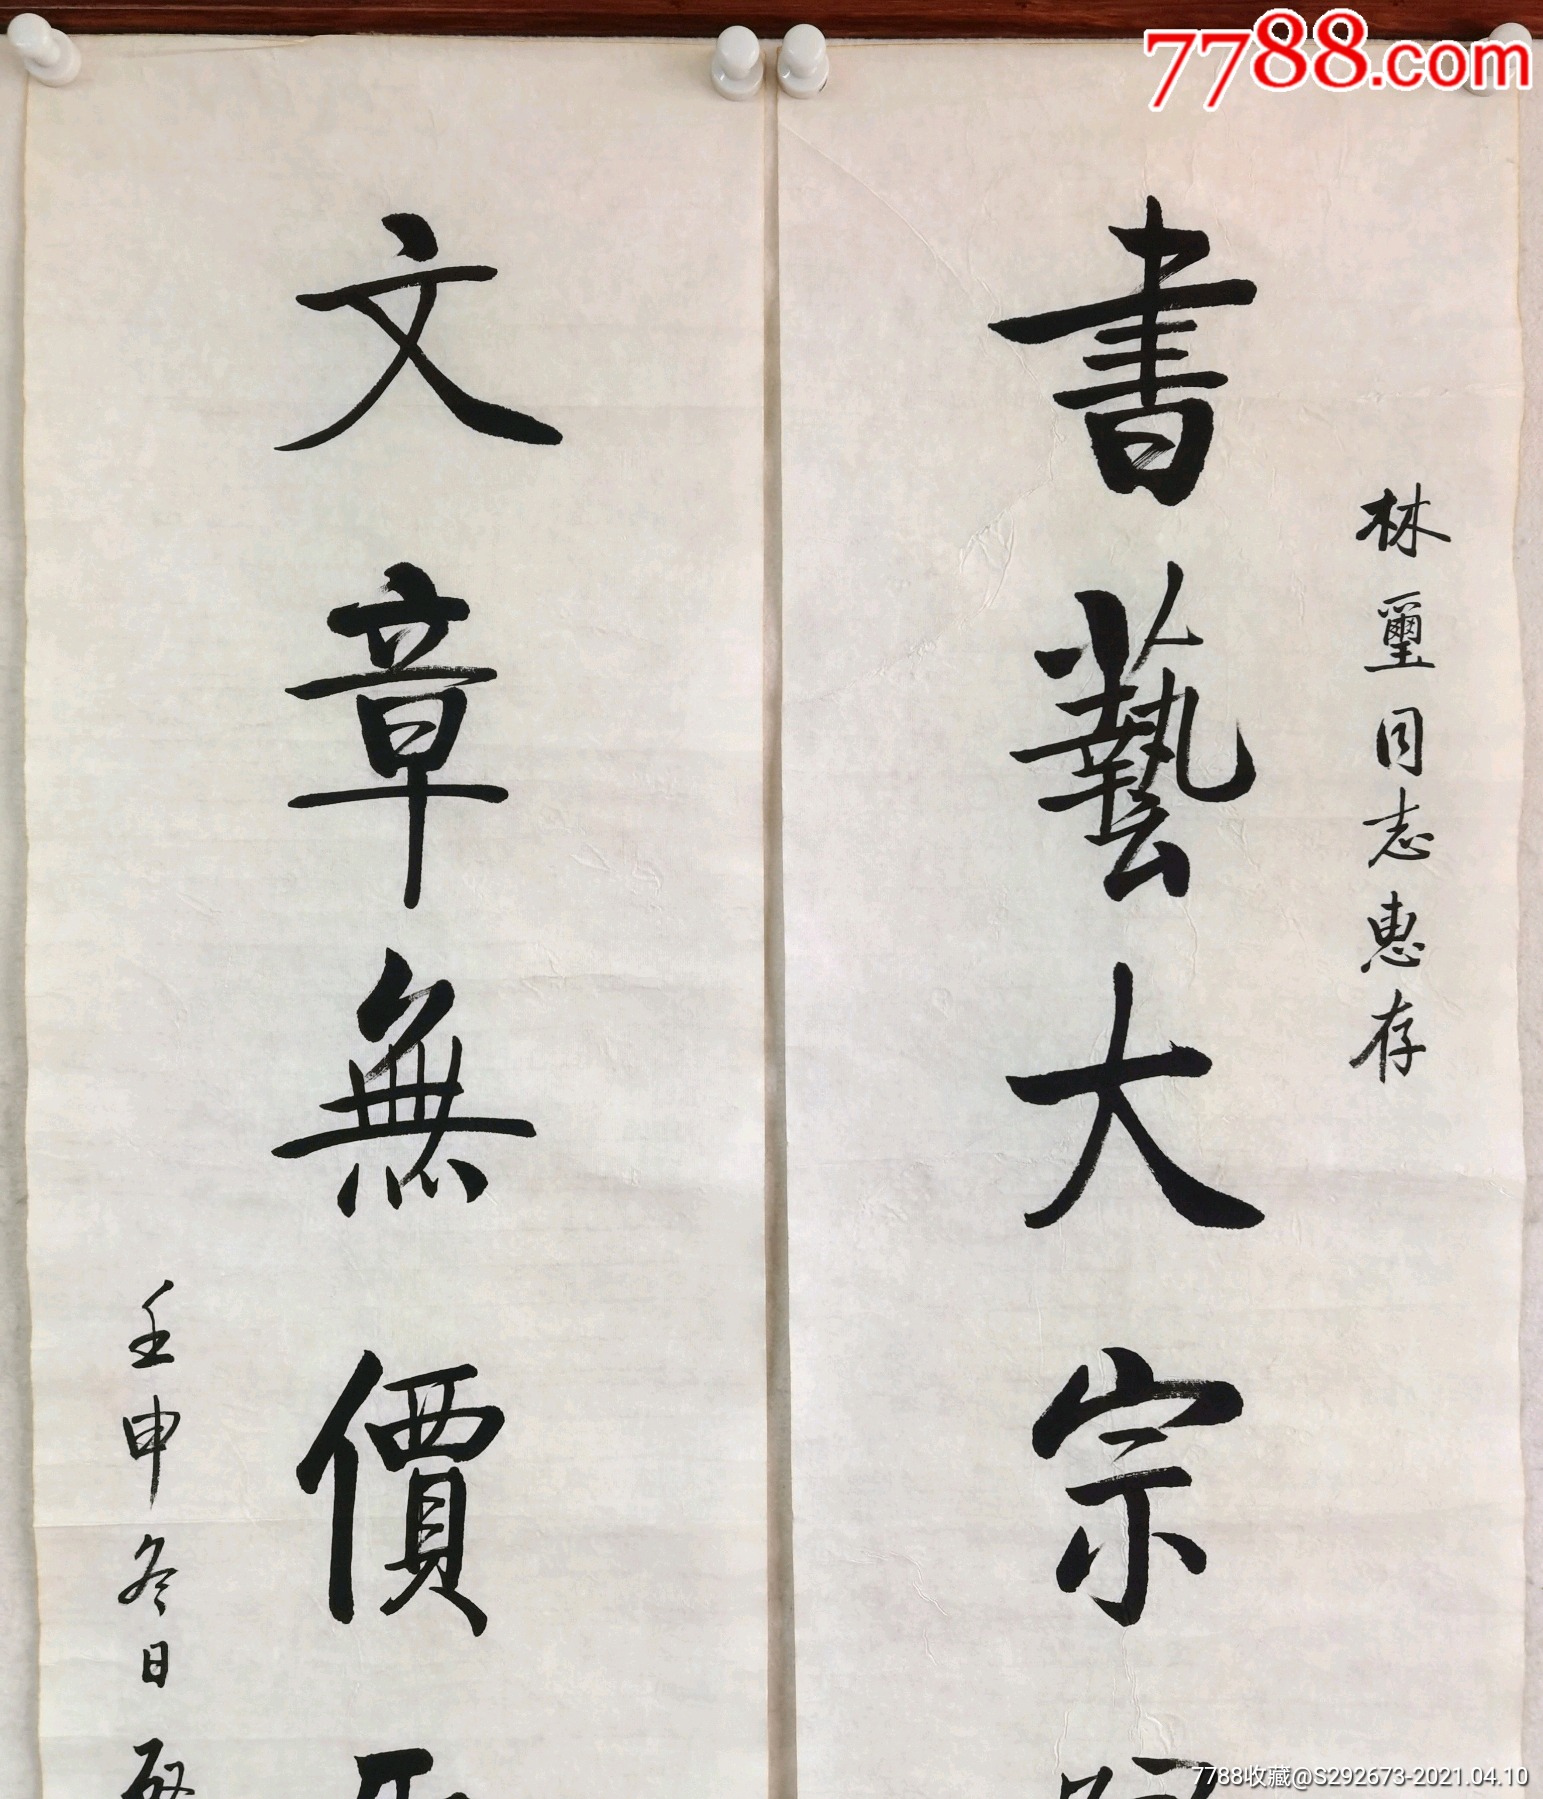 7788.com
林璽同志惠存
書藝大宗
文章無價
壬申冬日
7788收藏@S292673-2021.04.10